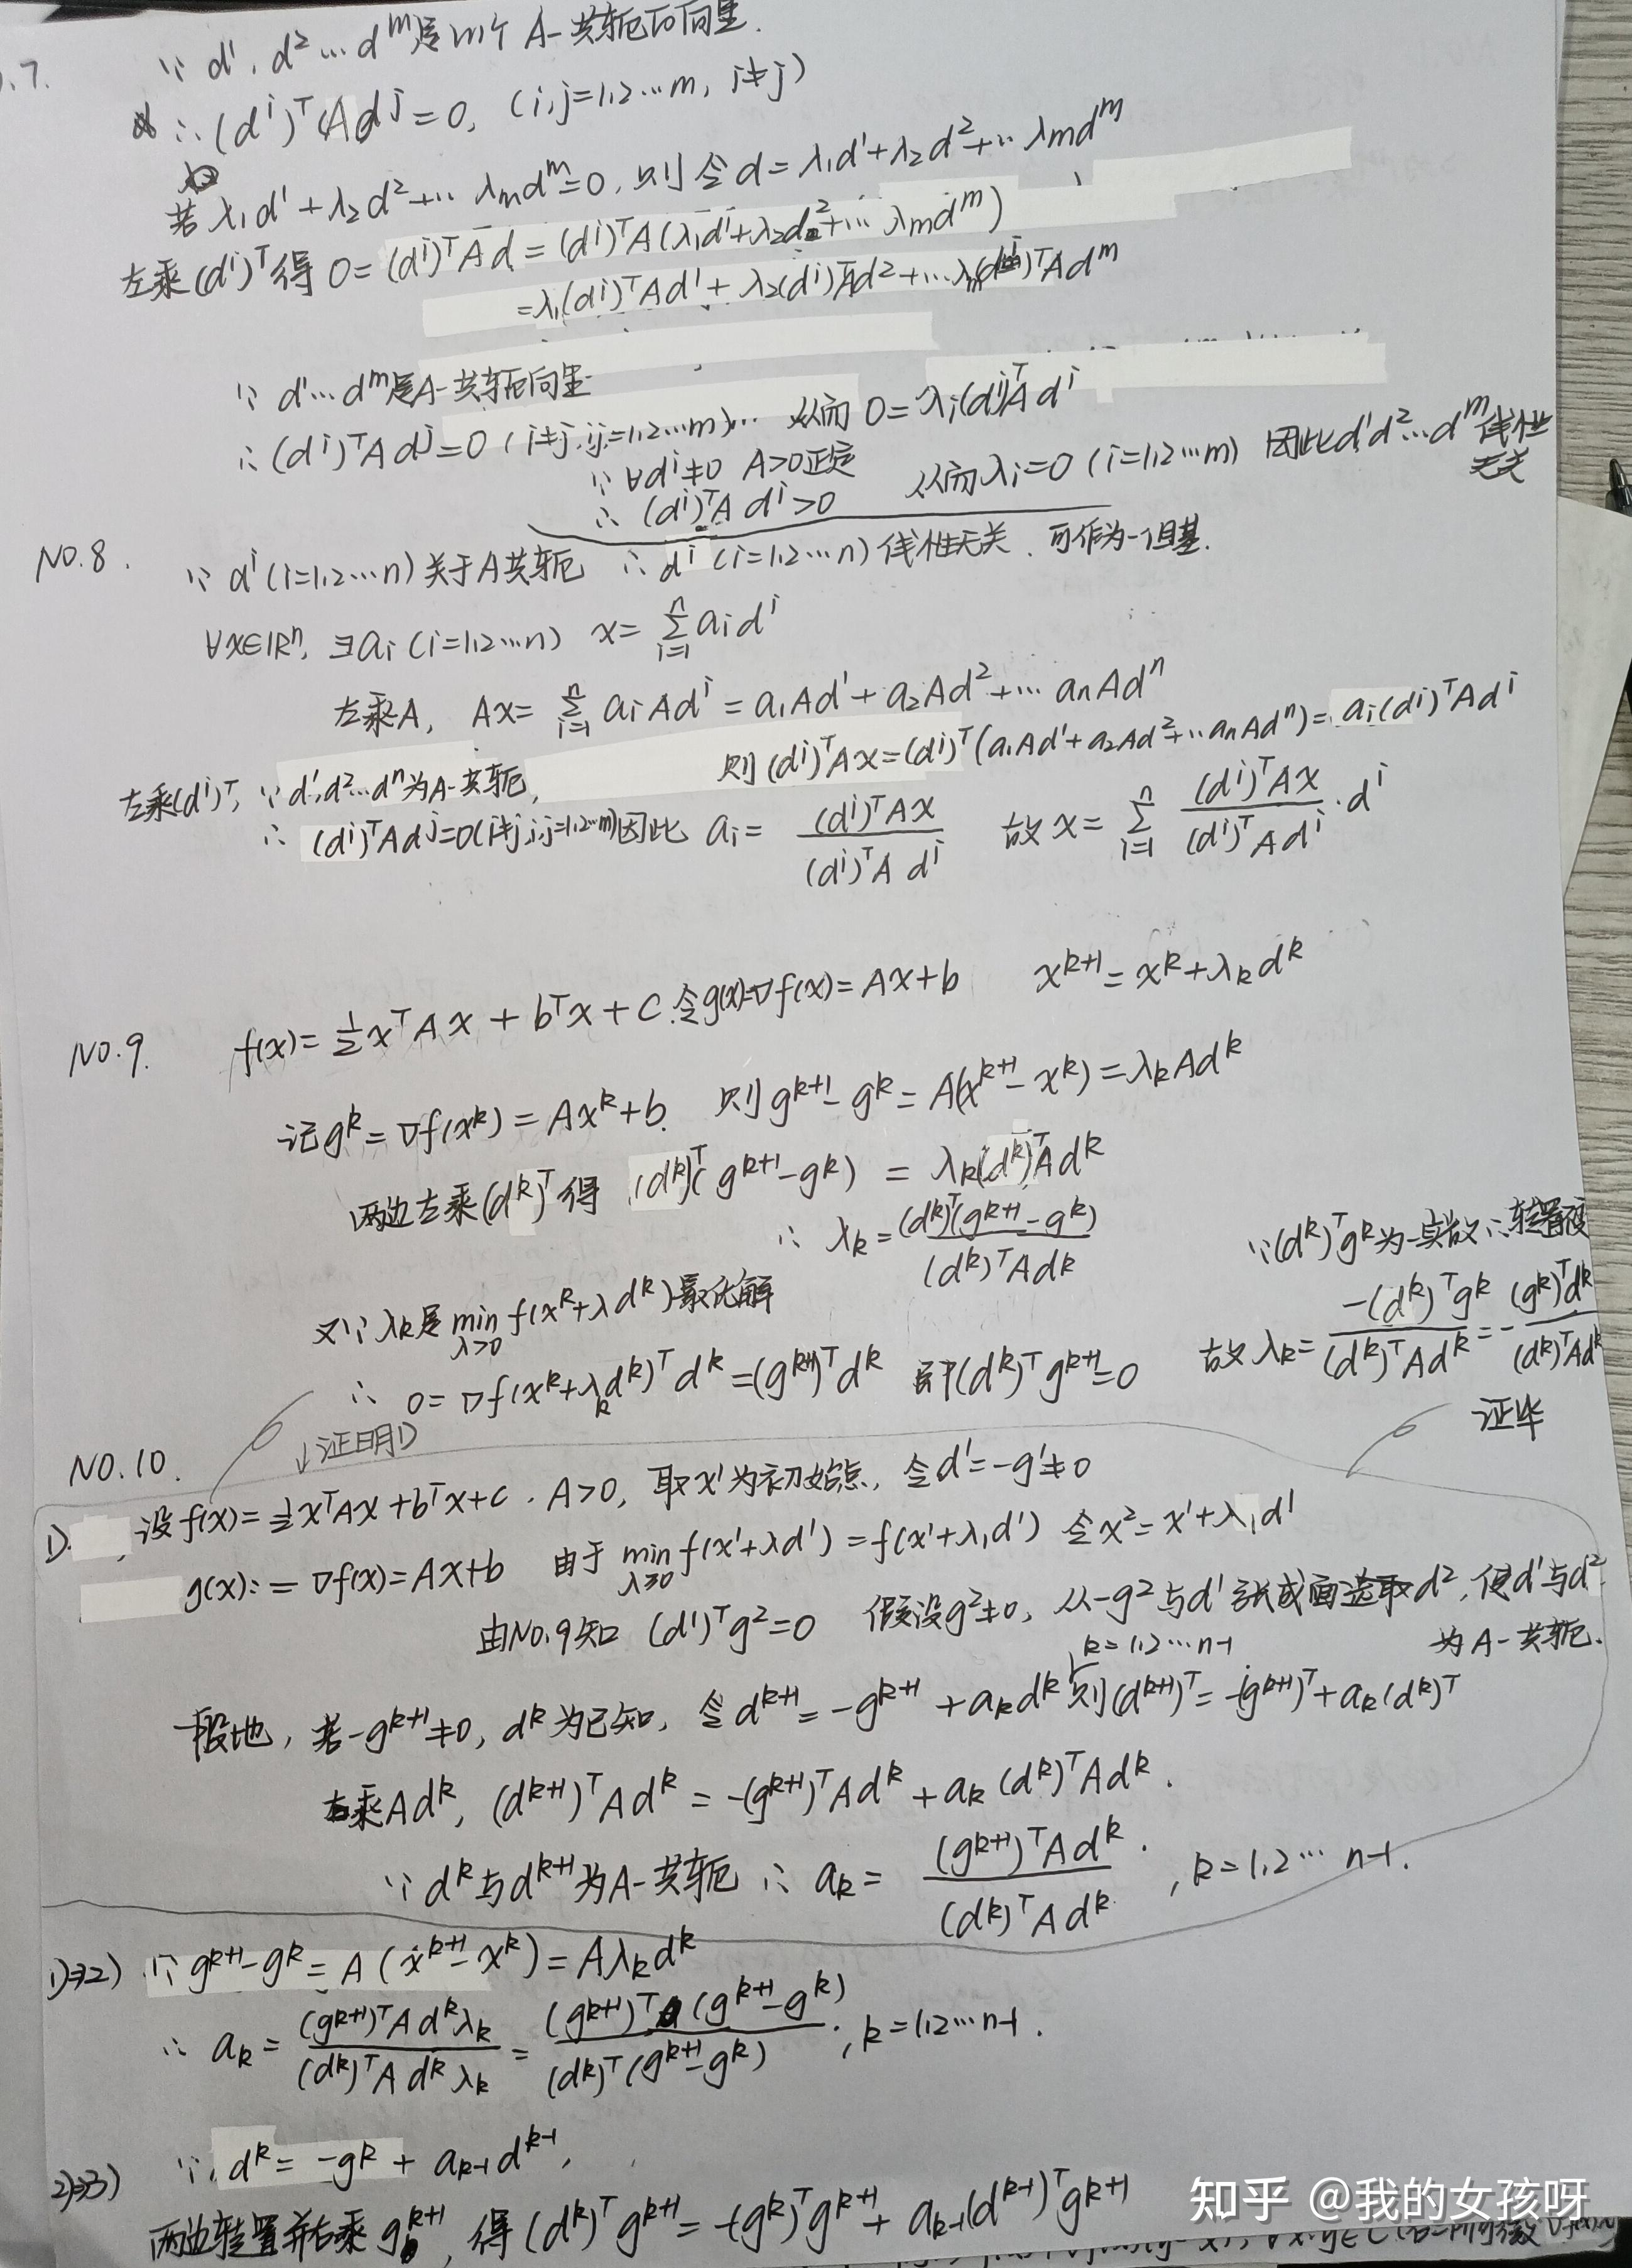 .7. ∵ d¹, d² … dᵐ是m个A-共轭的向量.
∴ (dⁱ)ᵀAdʲ = 0, (i,j=1,2…m, i≠j)
若 λ₁d¹+λ₂d²+… λₘdᵐ=0, 则令 d = λ₁d¹+λ₂d²+… λₘdᵐ
左乘(dⁱ)ᵀ得 0 = (dⁱ)ᵀAd = (dⁱ)ᵀA(λ₁d¹+λ₂d²+… λₘdᵐ)
=λ₁(dⁱ)ᵀAd¹ + λ₂(dⁱ)ᵀAd²+…λₘ(dⁱ)ᵀAdᵐ
∵ d¹…dᵐ是A-共轭向量
∴ (dⁱ)ᵀAdʲ=0 (i≠j, i,j=1,2…m)… 从而 0=λᵢ(dⁱ)ᵀAdⁱ
∵ ∀dⁱ≠0 A>0正定
∴ (dⁱ)ᵀAdⁱ>0 从而λᵢ=0 (i=1,2…m) 因此d¹d²…dᵐ线性无关
NO.8. ∵ dⁱ(i=1,2…n)关于A共轭 ∴ dⁱ (i=1,2…n)线性无关. 可作为一组基.
∀x∈ℝⁿ, ∃aᵢ (i=1,2…n) x = Σᵢ₌₁ⁿ aᵢdⁱ
左乘A, Ax = Σᵢ₌₁ⁿ aᵢAdⁱ = a₁Ad¹ + a₂Ad² +… aₙAdⁿ
左乘(dⁱ)ᵀ, ∵ d¹,d²…dⁿ为A-共轭, 则 (dⁱ)ᵀAx = (dⁱ)ᵀ(a₁Ad¹+a₂Ad²+…aₙAdⁿ) = aᵢ(dⁱ)ᵀAdⁱ
∴ (dⁱ)ᵀAdʲ=0(i≠j,i,j=1,2…m)因此 aᵢ = (dⁱ)ᵀAx / (dⁱ)ᵀAdⁱ 故 x = Σᵢ₌₁ⁿ (dⁱ)ᵀAx / (dⁱ)ᵀAdⁱ · dⁱ
NO.9. f(x) = ½xᵀAx + bᵀx + C. 令g(x)=∇f(x) = Ax+b xᵏ⁺¹ = xᵏ+λₖdᵏ
记gᵏ = ∇f(xᵏ) = Axᵏ+b. 则 gᵏ⁺¹ - gᵏ = A(xᵏ⁺¹ - xᵏ) = λₖAdᵏ
两边左乘(dᵏ)ᵀ得 (dᵏ)ᵀ(gᵏ⁺¹-gᵏ) = λₖ(dᵏ)ᵀAdᵏ
∴ λₖ = (dᵏ)ᵀ(gᵏ⁺¹-gᵏ) / (dᵏ)ᵀAdᵏ
∵(dᵏ)ᵀgᵏ为一实数∴转置
又∵ λₖ是 min λ>0 f(xᵏ+λdᵏ)最优解
∴ 0 = ∇f(xᵏ+λₖdᵏ)ᵀdᵏ = (gᵏ⁺¹)ᵀdᵏ 即(dᵏ)ᵀgᵏ⁺¹=0 故λₖ = -(dᵏ)ᵀgᵏ / (dᵏ)ᵀAdᵏ = - (gᵏ)ᵀdᵏ / (dᵏ)ᵀAdᵏ
证毕
NO.10. ↓证明1)
1). 设f(x) = ½xᵀAx+bᵀx+c. A>0, 取x¹为初始点, 令d¹=-g¹≠0
g(x):=∇f(x)=Ax+b 由于 min λ≥0 f(x¹+λd¹) = f(x¹+λ₁d¹) 令x² = x¹+λ₁d¹
由NO.9知 (d¹)ᵀg²=0 假设g²≠0, 从-g²与d¹张成面选取d², 使d¹与d²为A-共轭.
k=1,2…n-1
一般地, 若-gᵏ⁺¹≠0, dᵏ为已知, 令dᵏ⁺¹=-gᵏ⁺¹+aₖdᵏ 则(dᵏ⁺¹)ᵀ = -(gᵏ⁺¹)ᵀ+aₖ(dᵏ)ᵀ
右乘Adᵏ, (dᵏ⁺¹)ᵀAdᵏ = -(gᵏ⁺¹)ᵀAdᵏ + aₖ(dᵏ)ᵀAdᵏ.
∵ dᵏ与dᵏ⁺¹为A-共轭 ∴ aₖ = (gᵏ⁺¹)ᵀAdᵏ / (dᵏ)ᵀAdᵏ, k=1,2…n-1.
1)⇒2) ∵ gᵏ⁺¹-gᵏ = A(xᵏ⁺¹-xᵏ) = Aλₖdᵏ
∴ aₖ = (gᵏ⁺¹)ᵀAdᵏλₖ / (dᵏ)ᵀAdᵏλₖ = (gᵏ⁺¹)ᵀ(gᵏ⁺¹-gᵏ) / (dᵏ)ᵀ(gᵏ⁺¹-gᵏ), k=1,2…n-1.
2)⇒3) ∵ dᵏ = -gᵏ + aₖ₋₁dᵏ⁻¹,
两边转置并右乘gᵏ⁺¹, 得 (dᵏ)ᵀgᵏ⁺¹ = -(gᵏ)ᵀgᵏ⁺¹ + aₖ₋₁(dᵏ⁻¹)ᵀgᵏ⁺¹
知乎 @我的女孩呀